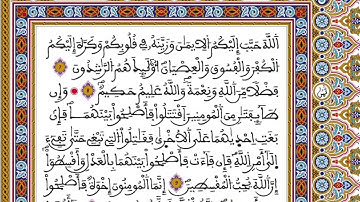 اَ۬للَّهَ حَبَّبَ إِلَيْكُمُ اُ۬لِايمَٰنَ وَزَيَّنَهُۥ فِے قُلُوبِكُمْ وَكَرَّهَ إِلَيْكُمُ
اُ۬لْكُفْرَ وَالْفُسُوقَ وَالْعِصْيَانَ أُوْلَٰٓئِكَ هُمُ اُ۬لرَّٰشِدُونَ
فَضْلاٗ مِّنَ اَ۬للَّهِ وَنِعْمَةٗ وَاللَّهُ عَلِيمٌ حَكِيمٞ وَإِن
طَآئِفَتَٰنِ مِنَ اَ۬لْمُومِنِينَ اَ۪قْتَتَلُواْ فَأَصْلِحُواْ بَيْنَهُمَا فَإِنۢ
بَغَتِ اِحْد۪يٰهُمَا عَلَي اَ۬لُاخْر۪يٰ فَقَٰتِلُواْ اُ۬لتِے تَبْغِے حَتَّيٰ تَفِےٓءَ
إِلَيٰٓ أَمْرِ اِ۬للَّهِ فَإِن فَآءَتْ فَأَصْلِحُواْ بَيْنَهُمَا بِالْعَدْلِ وَأَقْسِطُوٓاْ
إِنَّ اَ۬للَّهَ يُحِبُّ اُ۬لْمُقْسِطِينَ إِنَّمَا اَ۬لْمُومِنُونَ إِخْوَةٞ فَأَصْلِحُواْ